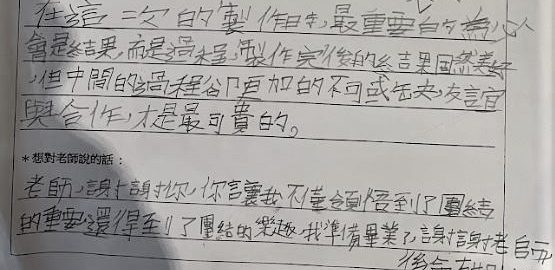 在這一次的製作時,最重要的為必
會是結果,而是過程,製作完後的結果固然美好
,但中間的過程卻更加的不可或缺,友誼
與合作,才是最可貴的。
*想對老師說的話:
老師,謝謝你,你讓我不僅領悟到了團結
的重要,還得到了團結的樂趣,我準備畢業了,謝謝老師
後會